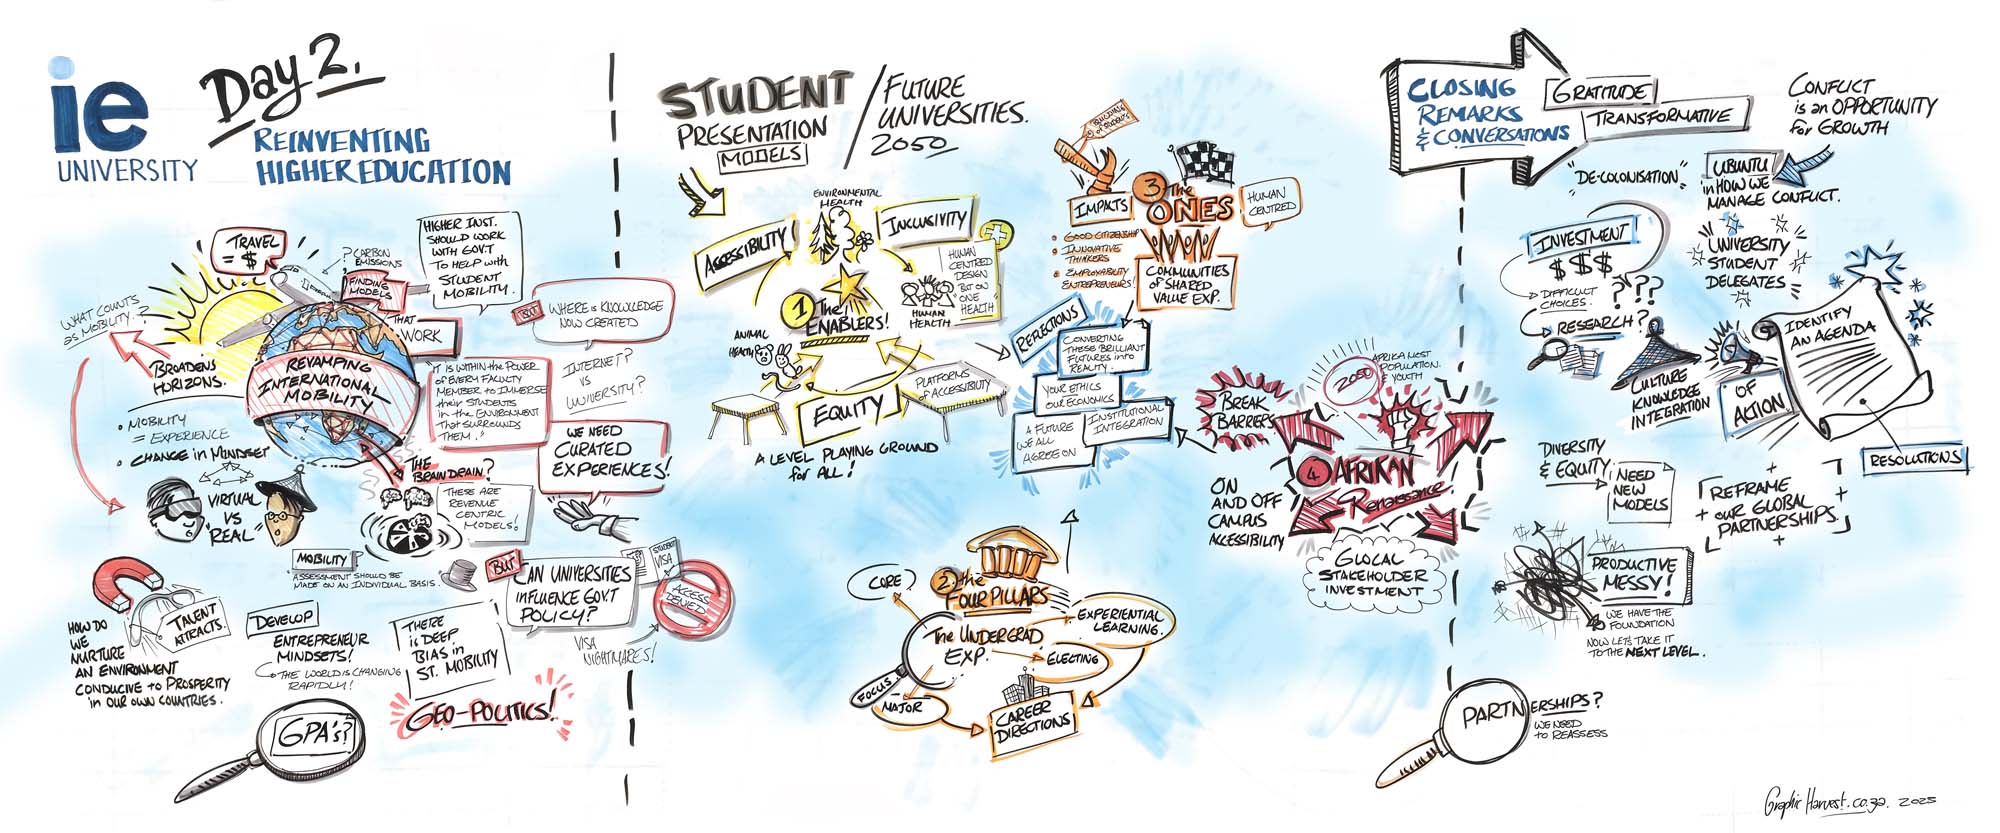 ie
UNIVERSITY
Day 2.
REINVENTING
HIGHER EDUCATION
TRAVEL
= $
? CARBON
EMISSIONS
FINDING
MODELS
THAT
WORK
HIGHER INST.
SHOULD WORK
WITH GOV.T
TO HELP with
STUDENT
MOBILITY.
WHAT COUNTS
as MOBILITY..?
BROADENS
HORIZONS.
REVAMPING
INTERNATIONAL
MOBILITY
BUT
WHERE is KNOWLEDGE
NOW CREATED
INTERNET?
VS
UNIVERSITY?
IT IS WITHIN the POWER
OF EVERY FACULTY
MEMBER to IMMERSE
their STUDENTS
in the ENVIRONMENT
THAT SURROUNDS
THEM."
• MOBILITY
= EXPERIENCE
• CHANGE in MINDSET
VIRTUAL
VS
"REAL"
THE
BRAIN DRAIN?
THESE ARE
REVENUE
CENTRIC
MODELS!
WE NEED
CURATED
EXPERIENCES!
MOBILITY
ASSESSMENT SHOULD BE
MADE ON AN INDIVIDUAL BASIS.
BUT
CAN UNIVERSITIES
INFLUENCE GOV.T
POLICY?
STUDENT
VISA
ACCESS
DENIED
VISA
NIGHTMARES!
TALENT
ATTRACTS.
HOW DO
WE
NURTURE
AN ENVIRONMENT
CONDUCIVE to PROSPERITY
in OUR OWN COUNTRIES.
DEVELOP
ENTREPRENEUR
MINDSETS!
THE WORLD IS CHANGING
RAPIDLY!
THERE
is DEEP
BIAS in
ST. MOBILITY
GEO-POLITICS!
GPA's?
STUDENT
PRESENTATION
MODELS
FUTURE
UNIVERSITIES.
2050
ENVIRONMENTAL
HEALTH
ACCESSIBILITY
INCLUSIVITY
HUMAN
CENTRED
DESIGN
BIT ON
"ONE
HEALTH"
1
The
ENABLERS!
HUMAN
HEALTH
ANIMAL
HEALTH
EQUITY
PLATFORMS
OF ACCESSIBILITY
A LEVEL PLAYING GROUND
for ALL!
BUILDING
of STUDENTS
IMPACTS
• GOOD CITIZENSHIP
• INNOVATIVE
THINKERS
• EMPLOYABILITY
ENTREPRENEURS!
3
The
ONES
HUMAN
CENTRED
COMMUNITIES
of SHARED
VALUE EXP.
REFLECTIONS
CONVERTING
THESE BRILLIANT
FUTURES into
REALITY.
YOUR ETHICS
OUR ECONOMICS
INSTITUTIONAL
INTEGRATION
A FUTURE
WE ALL
AGREE ON
2
the
FOUR PILLARS
CORE?
The UNDERGRAD
EXP.
EXPERIENTIAL
LEARNING.
ELECTING
FOCUS
MAJOR
CAREER
DIRECTIONS
BREAK
BARRIERS
2050
AFRIKA MOST
POPULATION.
& YOUTH
4
AFRIKAN
Renaissance
ON
AND OFF
CAMPUS
ACCESSIBILITY
GLOCAL
STAKEHOLDER
INVESTMENT
CLOSING
REMARKS
& CONVERSATIONS
GRATITUDE
TRANSFORMATIVE
CONFLICT
is an OPPORTUNITY
for GROWTH
"DE-COLONISATION"
UBUNTU
in HOW WE
MANAGE CONFLICT.
INVESTMENT
$ $ $
DIFFICULT
CHOICES.
? ??
RESEARCH?
UNIVERSITY
STUDENT
DELEGATES
CULTURE
KNOWLEDGE
INTEGRATION
OF
ACTION
IDENTIFY
AN AGENDA
RESOLUTIONS
DIVERSITY
& EQUITY
NEED
NEW
MODELS
REFRAME
OUR GLOBAL
PARTNERSHIPS
PRODUCTIVE
MESSY!
WE HAVE THE
FOUNDATION
NOW LETS TAKE IT
TO THE NEXT LEVEL.
PARTNERSHIPS?
WE NEED
to REASSESS
Graphic Harvest.co.za. 2025